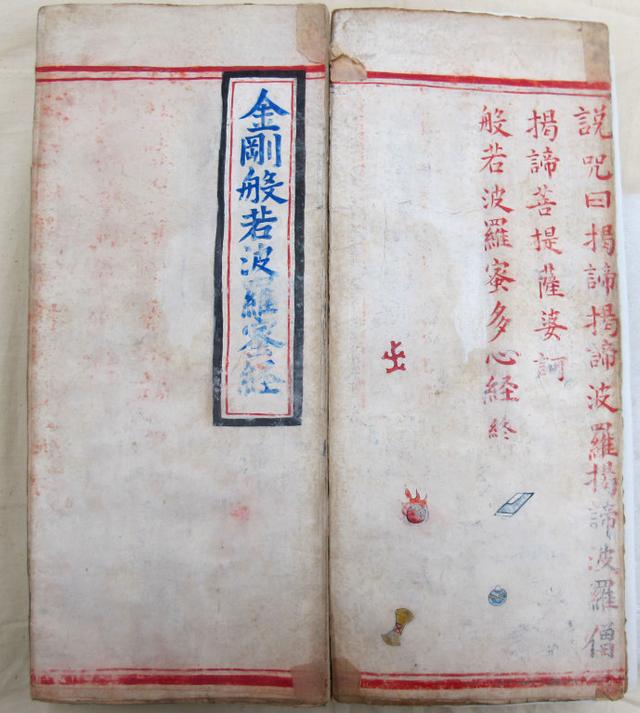 說咒曰揭諦揭諦波羅揭諦波羅僧
揭諦菩提薩婆訶
般若波羅蜜多心經終
金剛般若波羅蜜經